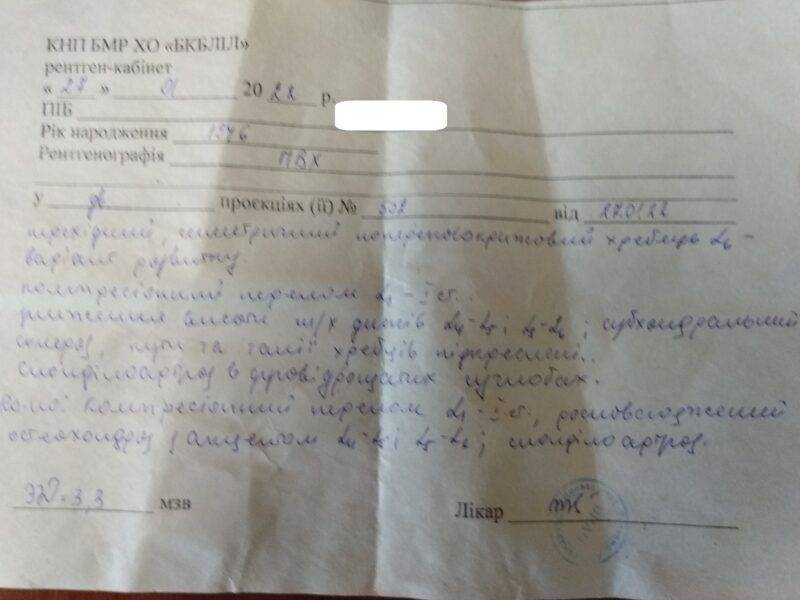 КНП БМР ХО «БКБЛІЛ»
рентген-кабінет
« 27 » 01 2022 р.
ПІБ
Рік народження 1976
Рентгенографія ПВХ
У дв. проєкціях (ії) № 532 від 27.01.22
перехідний, симетричний попереково-крижовий хребець L6 –
варіант розвитку
компресіонний перелом L1 – I ст.
зниження висоти м/х дисків L4-L5 і L5-L6 ; субхондральний
склероз, кути та талії хребців підкреслені.
спонділоартроз в дуговідросчатих суглобах.
компресіонний перелом L1 – I ст., росповсюджений
остеохондроз з акцентом L4-L5 і L5-L6 ; спонділоартроз.
ЭЭД=3,3 мзв
Лікар